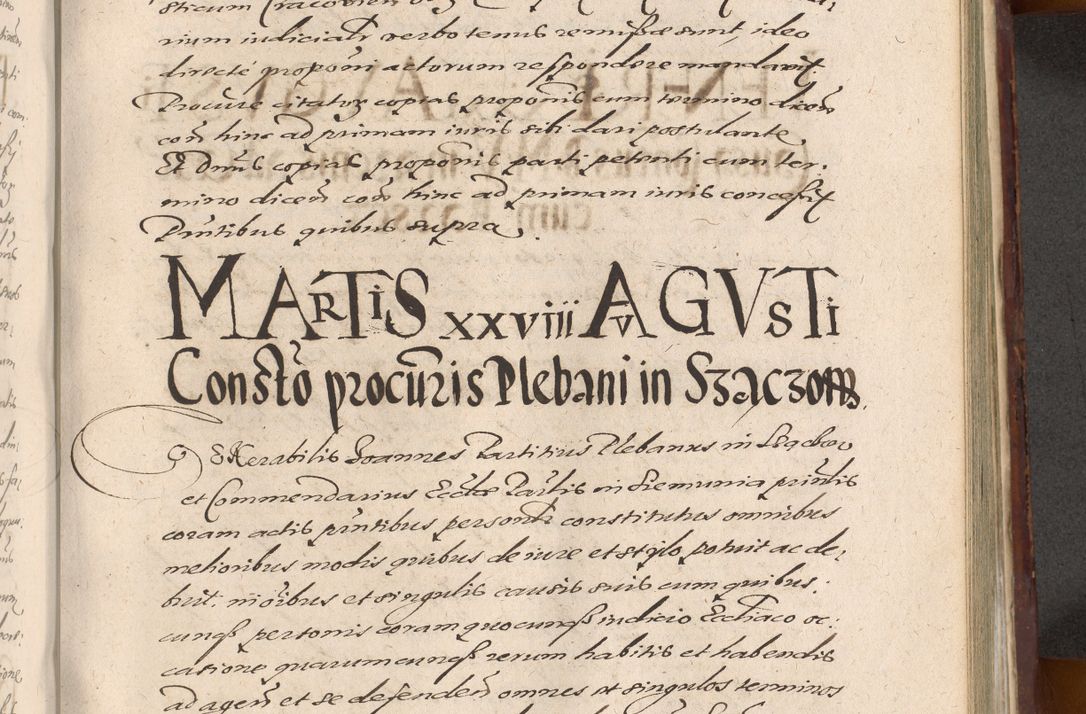 rium iudiciali verbo tenus remissae sunt, ideo
directé proponi actorum respondere mandavit.
Procure citatus copias proponis cum termino dicen
con hinc ad primam iuris sibi dari postulante
Et Dnus copias proponis parti petenti cum ter:
mino dicen con hinc ad primam iuris concessit
Pntibus quibus supra.
MARTIS xxviii AVGVSTI
Constto procuris Plebani in Szaczow
Venerabilis Joannes Partitius Plebanus in
et Commendarius Ecclae Partis in Siemunia printis
coram actis pntibus persontr constitutus omnibus
melioribus modis quibus de iure et stylo potuit ac de:
buit. in oibus et singulis causis suis cum quibus:
cunqs personis coram quocunqs iudicio Ecctiaco oc:
casione quarumcunqs rerum habitis et habendis
ad agen et se defenden omnes et singulos terminos